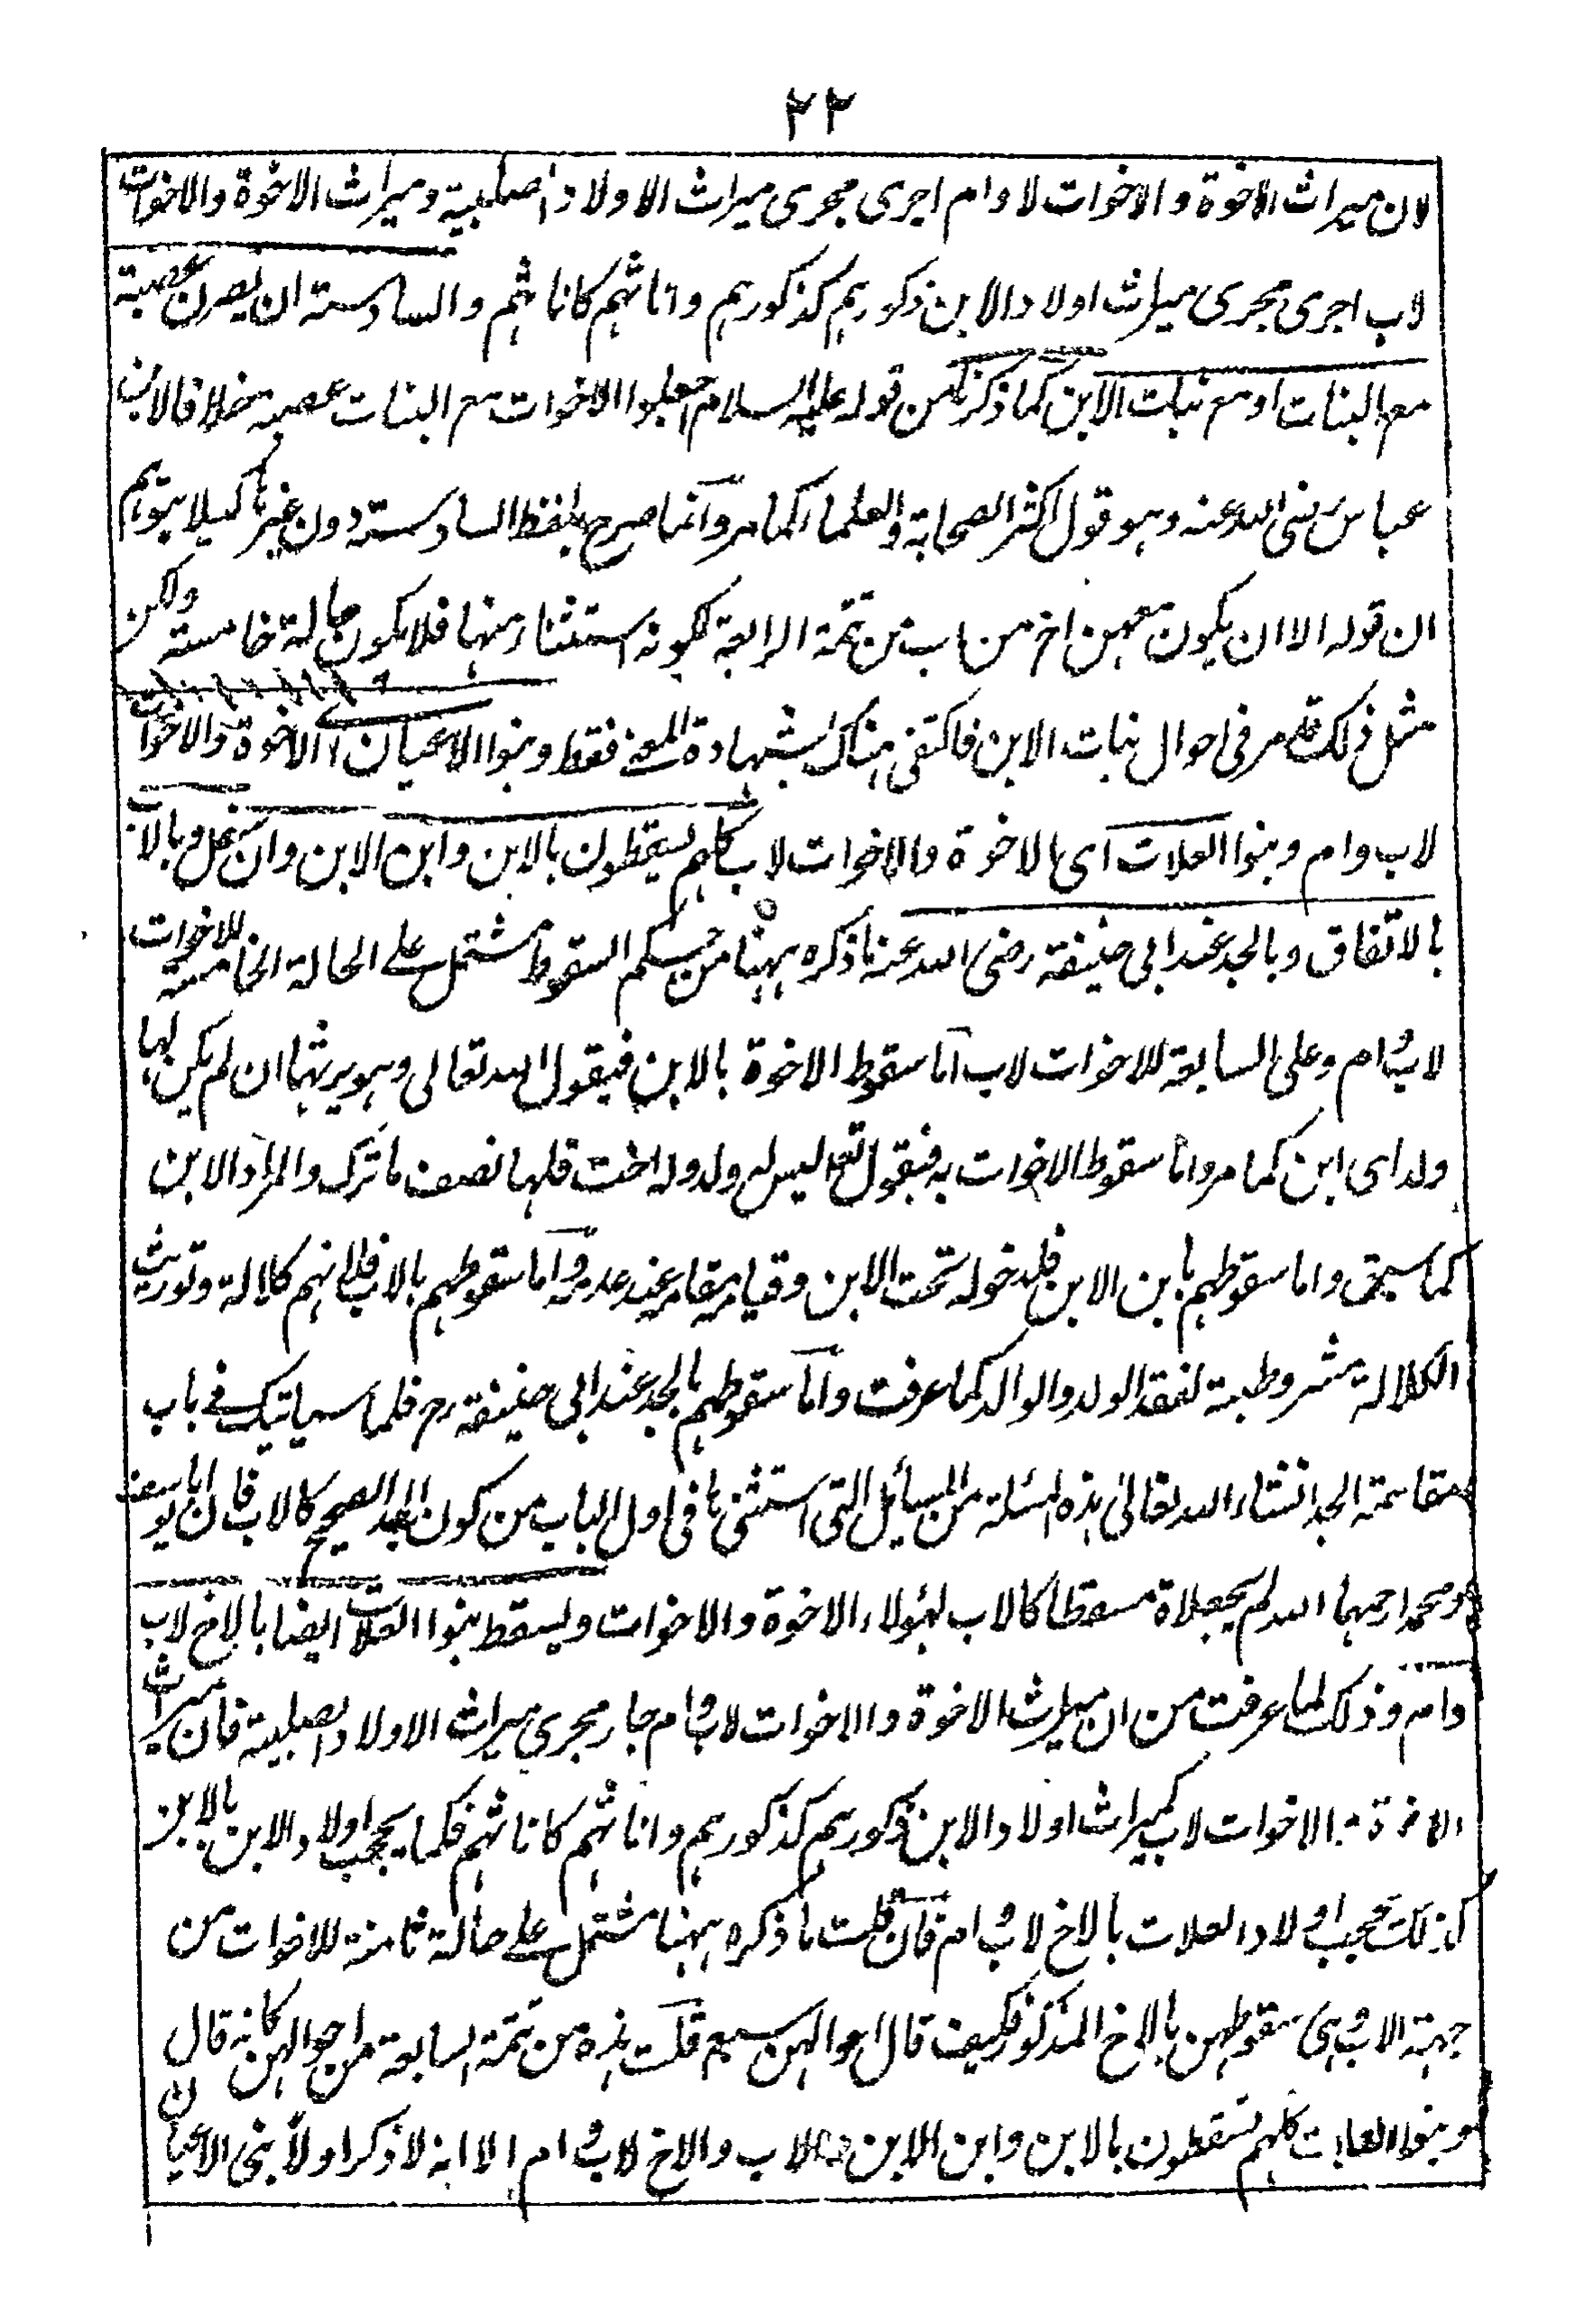 ٢٢
لان ميراث الاخوة والاخوات لاب وام اجرى مجرى ميراث الاولاد الصلبية وميراث الاخوة والاخوات
لاب اجرى مجرى ميراث اولاد الابن ذكورهم كذكورهم واناثهم كاناثهم والسادسة ان يصرن عصبة
مع البنات او مع بنات الابن كما ذكرنا من قوله عليه السلام اجعلوا الاخوات مع البنات عصبة خلافا لابن
عباس رضى الله عنه وهو قول اكثر الصحابة والعلماء كما مر وانما صرح بلفظ السادسة دون غيرها كيلا يتوهم
ان قوله الا ان يكون معهن اخ من اب من تتمة الرابعة لكونه استثناء منها فلا يكون حالة خامسة ولكن
مثل ذلك قد مر فى احوال بنات الابن فاكتفى هناك بشهادة المعنى فقط وبنوا الاعيان اى الاخوة والاخوات
لاب وام وبنوا العلات اى الاخوة والاخوات لاب كلهم يسقطون بالابن وابن الابن وان سفل وبالاب
بالاتفاق وبالجد عند ابى حنيفة رضى الله عنه ما ذكره ههنا من حكم السقوط مشتمل على الحالة الخامسة للاخوات
لاب وام وعلى السابعة للاخوات لاب اما سقوط الاخوة بالابن فبقول الله تعالى وهو يرثها ان لم يكن لها
ولد اى ابن كما مر واما سقوط الاخوات به فبقوله تعالى ليس له ولد وله اخت فلها نصف ما ترك والمراد الابن
كما سبق واما سقوطهم بابن الابن فلدخوله تحت الابن وقيامه مقامه عند عدمه واما سقوطهم بالاب فلانهم كلالة وتوريث
الكلالة مشروطة لفقد الولد والوالد كما عرفت واما سقوطهم بالجد عند ابى حنيفة رح فلما سياتيك فى باب
مقاسمة الجد انشاء الله تعالى هذه المسئلة من المسائل التى استثنى ها فى اول الباب من كون الجد الصحيح كالاب فان ابا يوسف
ومحمدا رحمهما الله لم يجعلاه مسقطا كالاب لهؤلاء الاخوة والاخوات ويسقط بنوا العلات ايضا بالاخ لاب
وام وذلك لما عرفت من ان ميراث الاخوة والاخوات لاب وام جار مجرى ميراث الاولاد الصلبية فان ميراث
الاخوة والاخوات لاب كميراث اولاد الابن ذكورهم كذكورهم واناثهم كاناثهم فكما يحجب اولاد الابن بالابن
كذلك يحجب اولاد العلات بالاخ لاب وام فان قلت ما ذكره ههنا مشتمل على حالة ثامنة للاخوات من
جهة الاب وهى سقوطهن بالاخ المذكور فكيف قال احوالهن سبع قلت هذه من تتمة السابعة من احوالهن كانه قال
وبنوا العلات كلهم يسقطون بالابن وابن الابن والاب والاخ لاب وام الا انه لما ذكر اولا بنى الاعيان